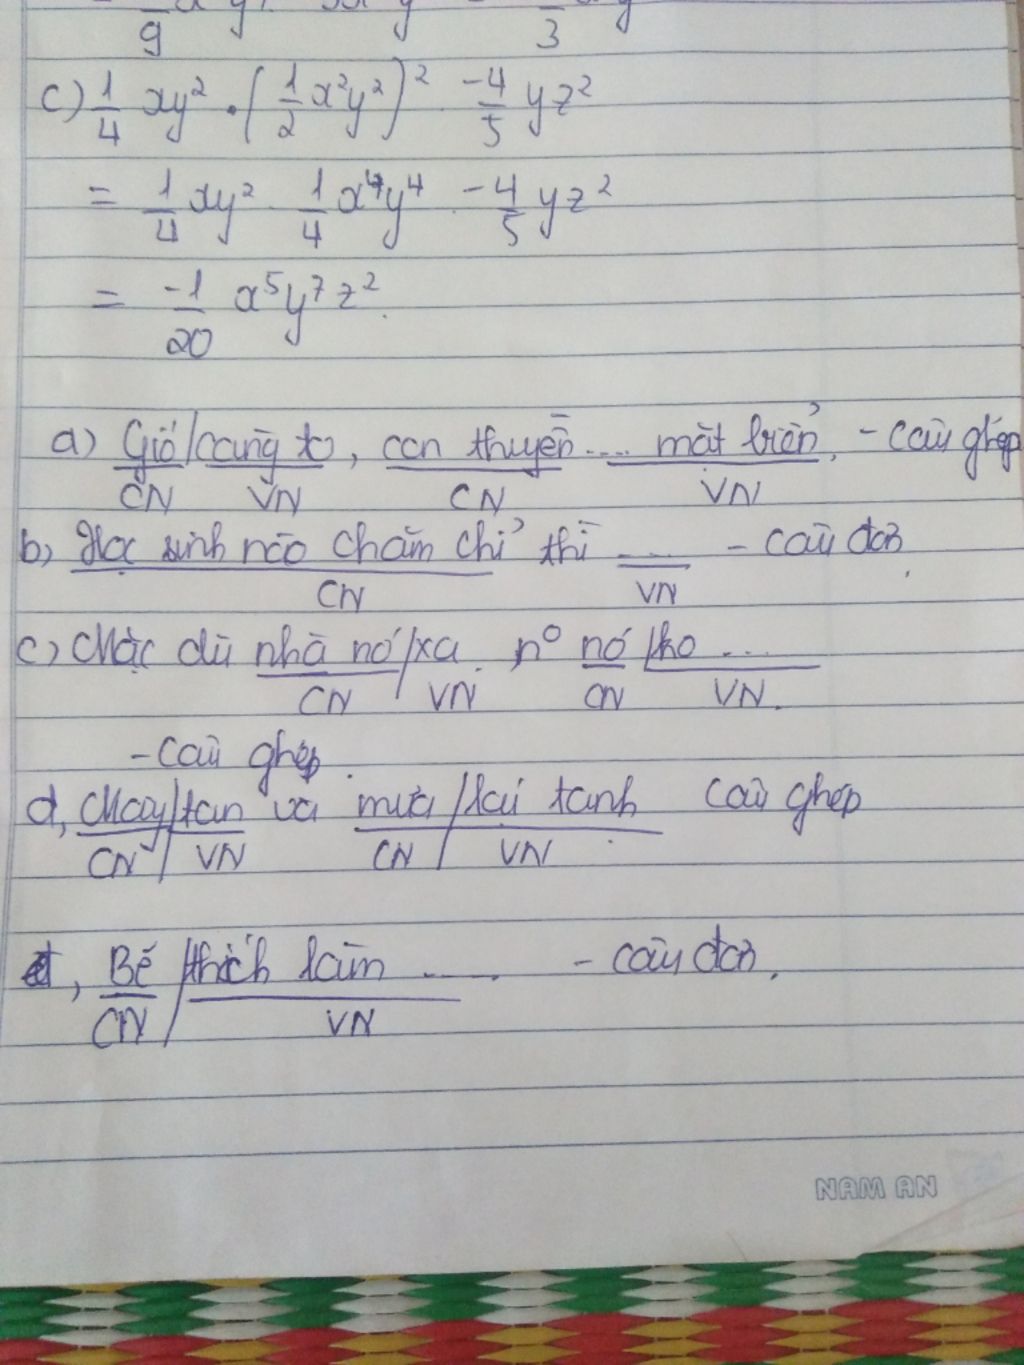 9 3
c) 1/4 xy² . (1/2 x²y²)² . -4/5 yz²
= 1/4 xy² . 1/4 x⁴y⁴ . -4/5 yz²
= -1/20 x⁵y⁷z².
a) Gió/càng to, con thuyền .... mặt biển. - câu ghép
CN VN CN VN
b, Học sinh nào chăm chỉ thì .... - câu đơn.
CN VN
c) Mặc dù nhà nó/xa. nº nó /ko ...
CN / VN CN VN.
- câu ghép.
d, Mây/tan và mưa/lại tạnh câu ghép
CN / VN CN / VN
đ, Bé /thích làm ..... - câu đơn.
CN / VN
NAM AN